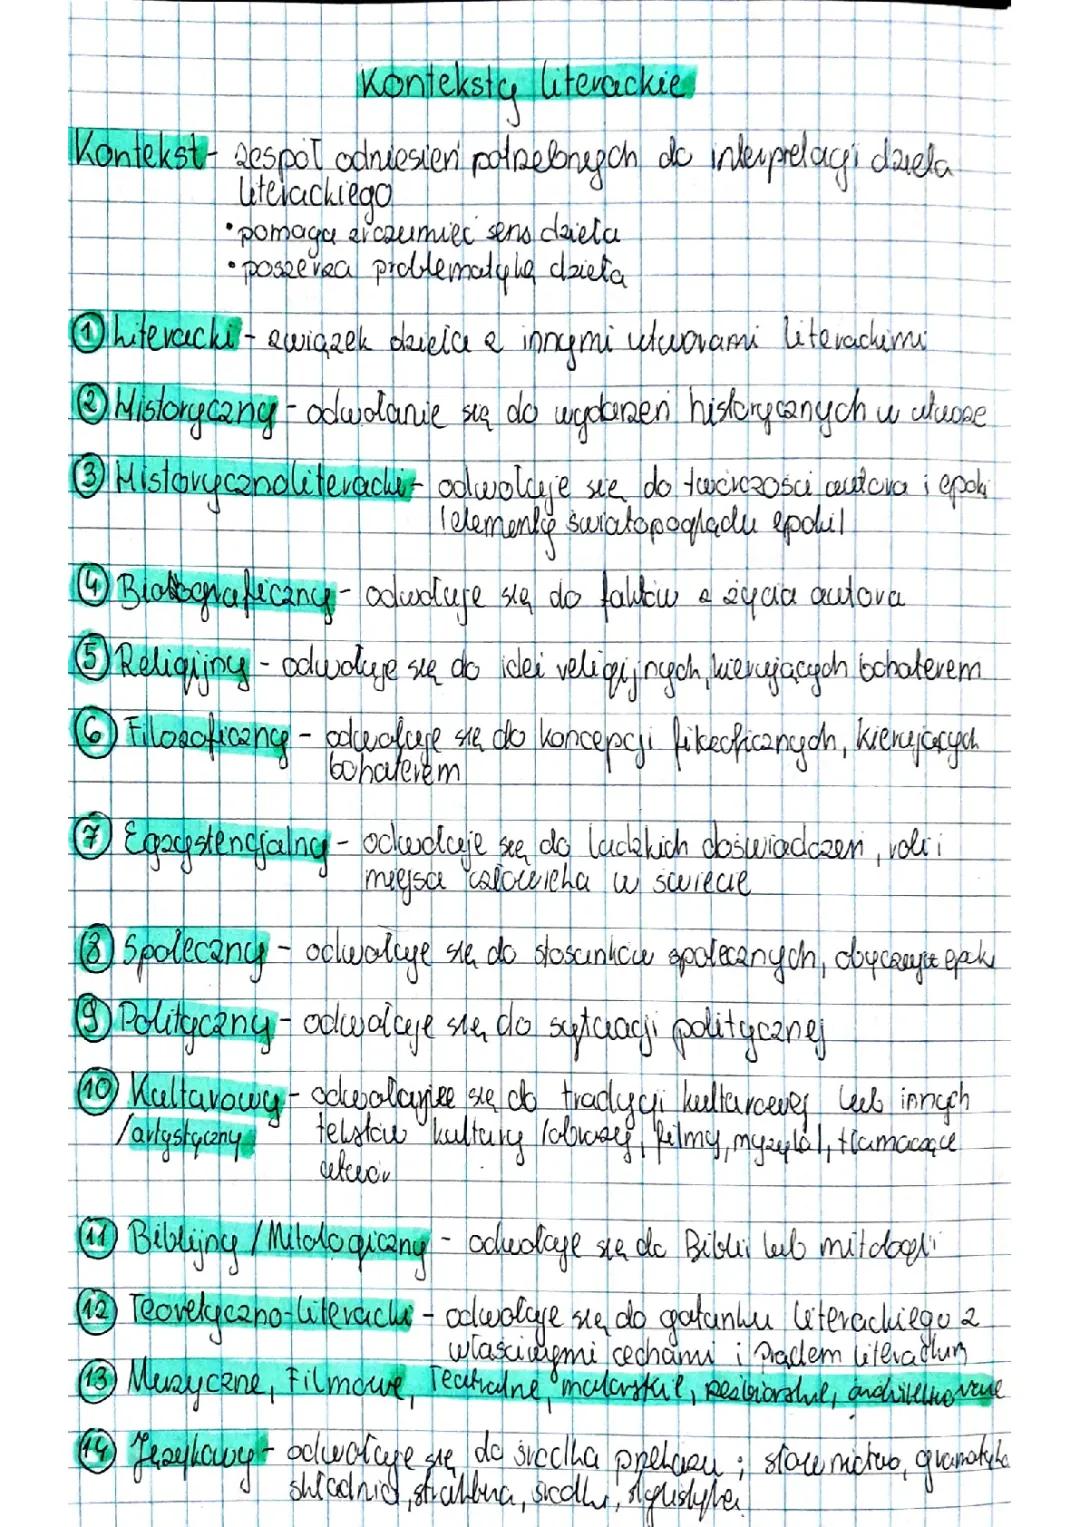 Konteksty literackie
Kontekst - zespół odniesień potrzebnych do interpretacji dzieła
literackiego
• pomaga zrozumieć sens dzieła
• poszerza problematykę dzieła
① Literacki - związek dzieła z innymi utworami literackimi
② Historyczny - odwołanie się do wydarzeń historycznych w utworze
③ Historycznoliteracki - odwołuje się do twórczości autora i epoki
(elementy światopoglądu epoki)
④ Biograficzny - odwołuje się do faktów z życia autora
⑤ Religijny - odwołuje się do idei religijnych, kierujących bohaterem
⑥ Filozoficzny - odwołuje się do koncepcji filozoficznych, kierujących
bohaterem
⑦ Egzystencjalny - odwołuje się do ludzkich doświadczeń, roli i
miejsca człowieka w świecie
⑧ Społeczny - odwołuje się do stosunków społecznych, obyczajów epoki
⑨ Polityczny - odwołuje się do sytuacji politycznej
⑩ Kulturowy - odwołanie się do tradycji kulturowej lub innych
/artystyczny tekstów kultury (obrazy, filmy, muzyka), tłumaczące
utwór
⑪ Biblijny / Mitologiczny - odwołuje się do Biblii lub mitologii
⑫ Teoretyczno-literacki - odwołuje się do gatunku literackiego z
właściwymi cechami i prądem literackim
⑬ Muzyczne, Filmowe, Teatralne, malarskie, rzeźbiarskie, architektoniczne
⑭ Językowy - odwołuje się do środka przekazu; słownictwo, gramatyka
składnia, struktura, środki